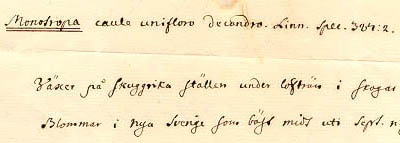 Monotropa caule unifloro decandro. Linn. spec. 387:2.
Växer på skuggrika ställen under löfträn i skogar
Blommar i nya Sverige som bäst midt uti Sept.